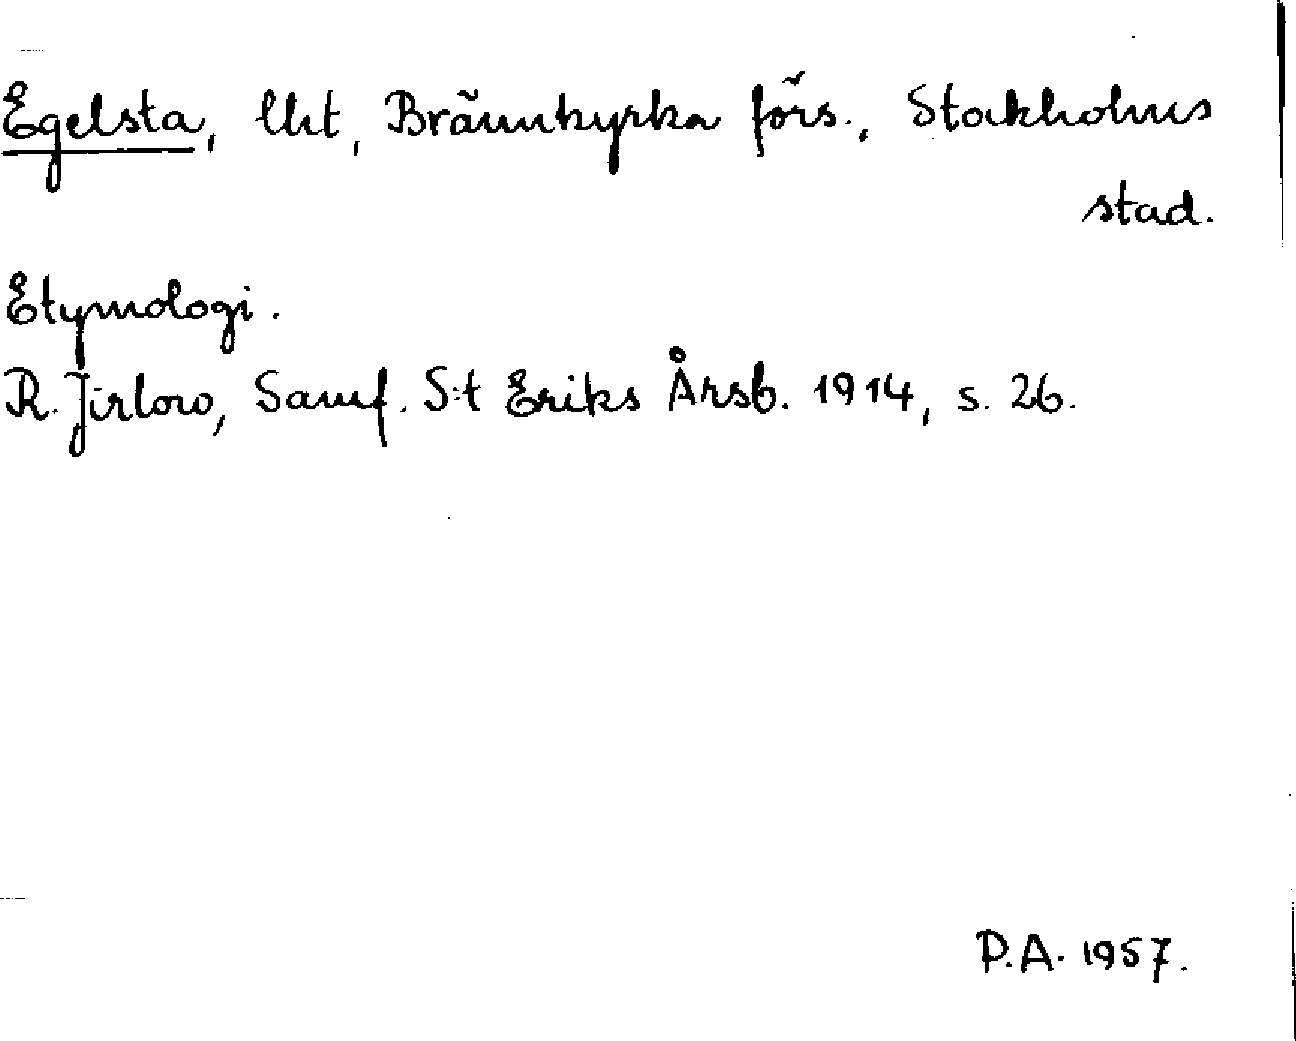 Egelsta, lht, Brännkyrka förs., Stockholms
stad.
Etymologi.
R. Jirlow, Samf. S:t Eriks Årsb. 1914, s. 26.
P.A. 1957.